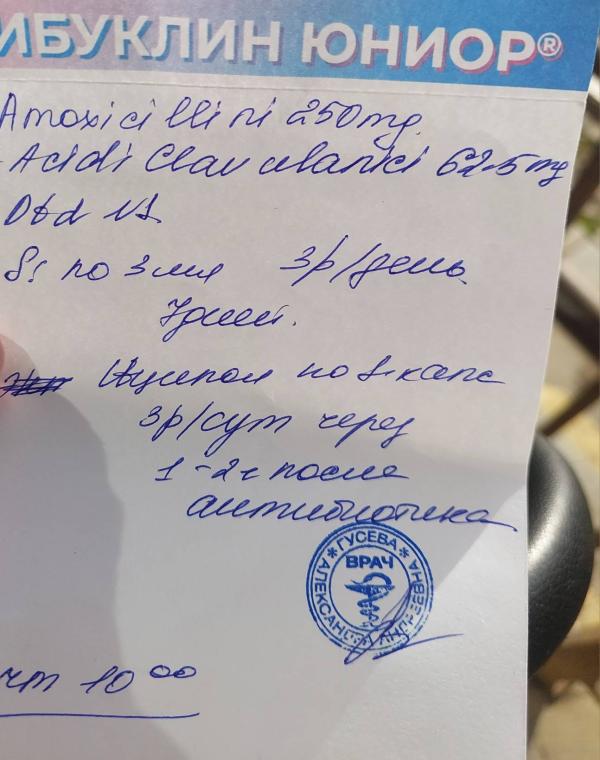 ИБУКЛИН ЮНИОР®
Amoxicillini 250mg.
Acidi Clavulanici 62.5mg
Dtd N1
S: по 3 мл 3р/день
7 дней.
Аципол по 1 капс
3р/сут через
1-2ч после
антибиотика
ГУСЕВА
АЛЕКСАНДРА АНДРЕЕВНА
ВРАЧ
чт 10 00